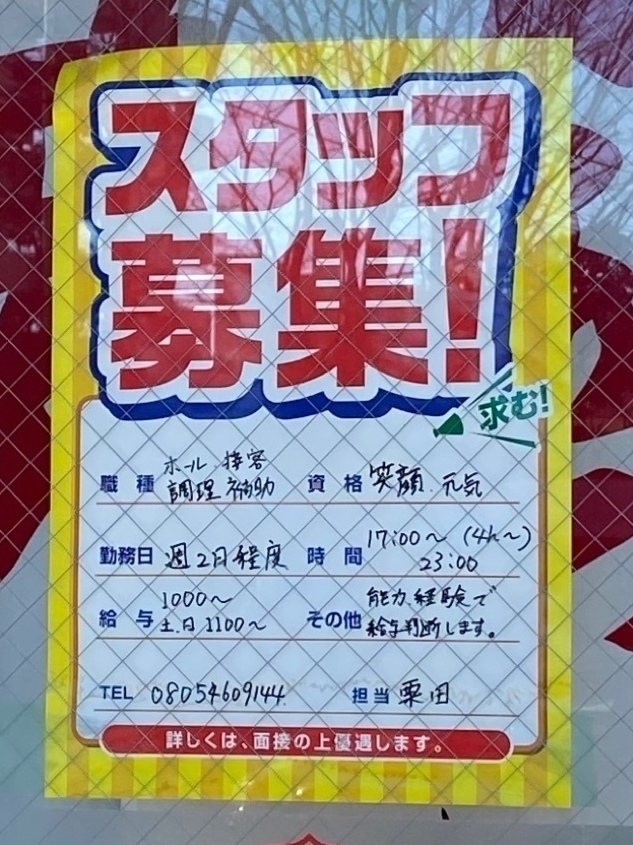 スタッフ
募集!
求む!
職種 ホール 接客
調理補助
資格 笑顔.元気
勤務日 週2日程度
時間 17:00～(4h～)
23:00
給与 1000～
土.日 1100～
その他 能力.経験で
給与判断します。
TEL 08054609144
担当 粟田
詳しくは、面接の上優遇します。